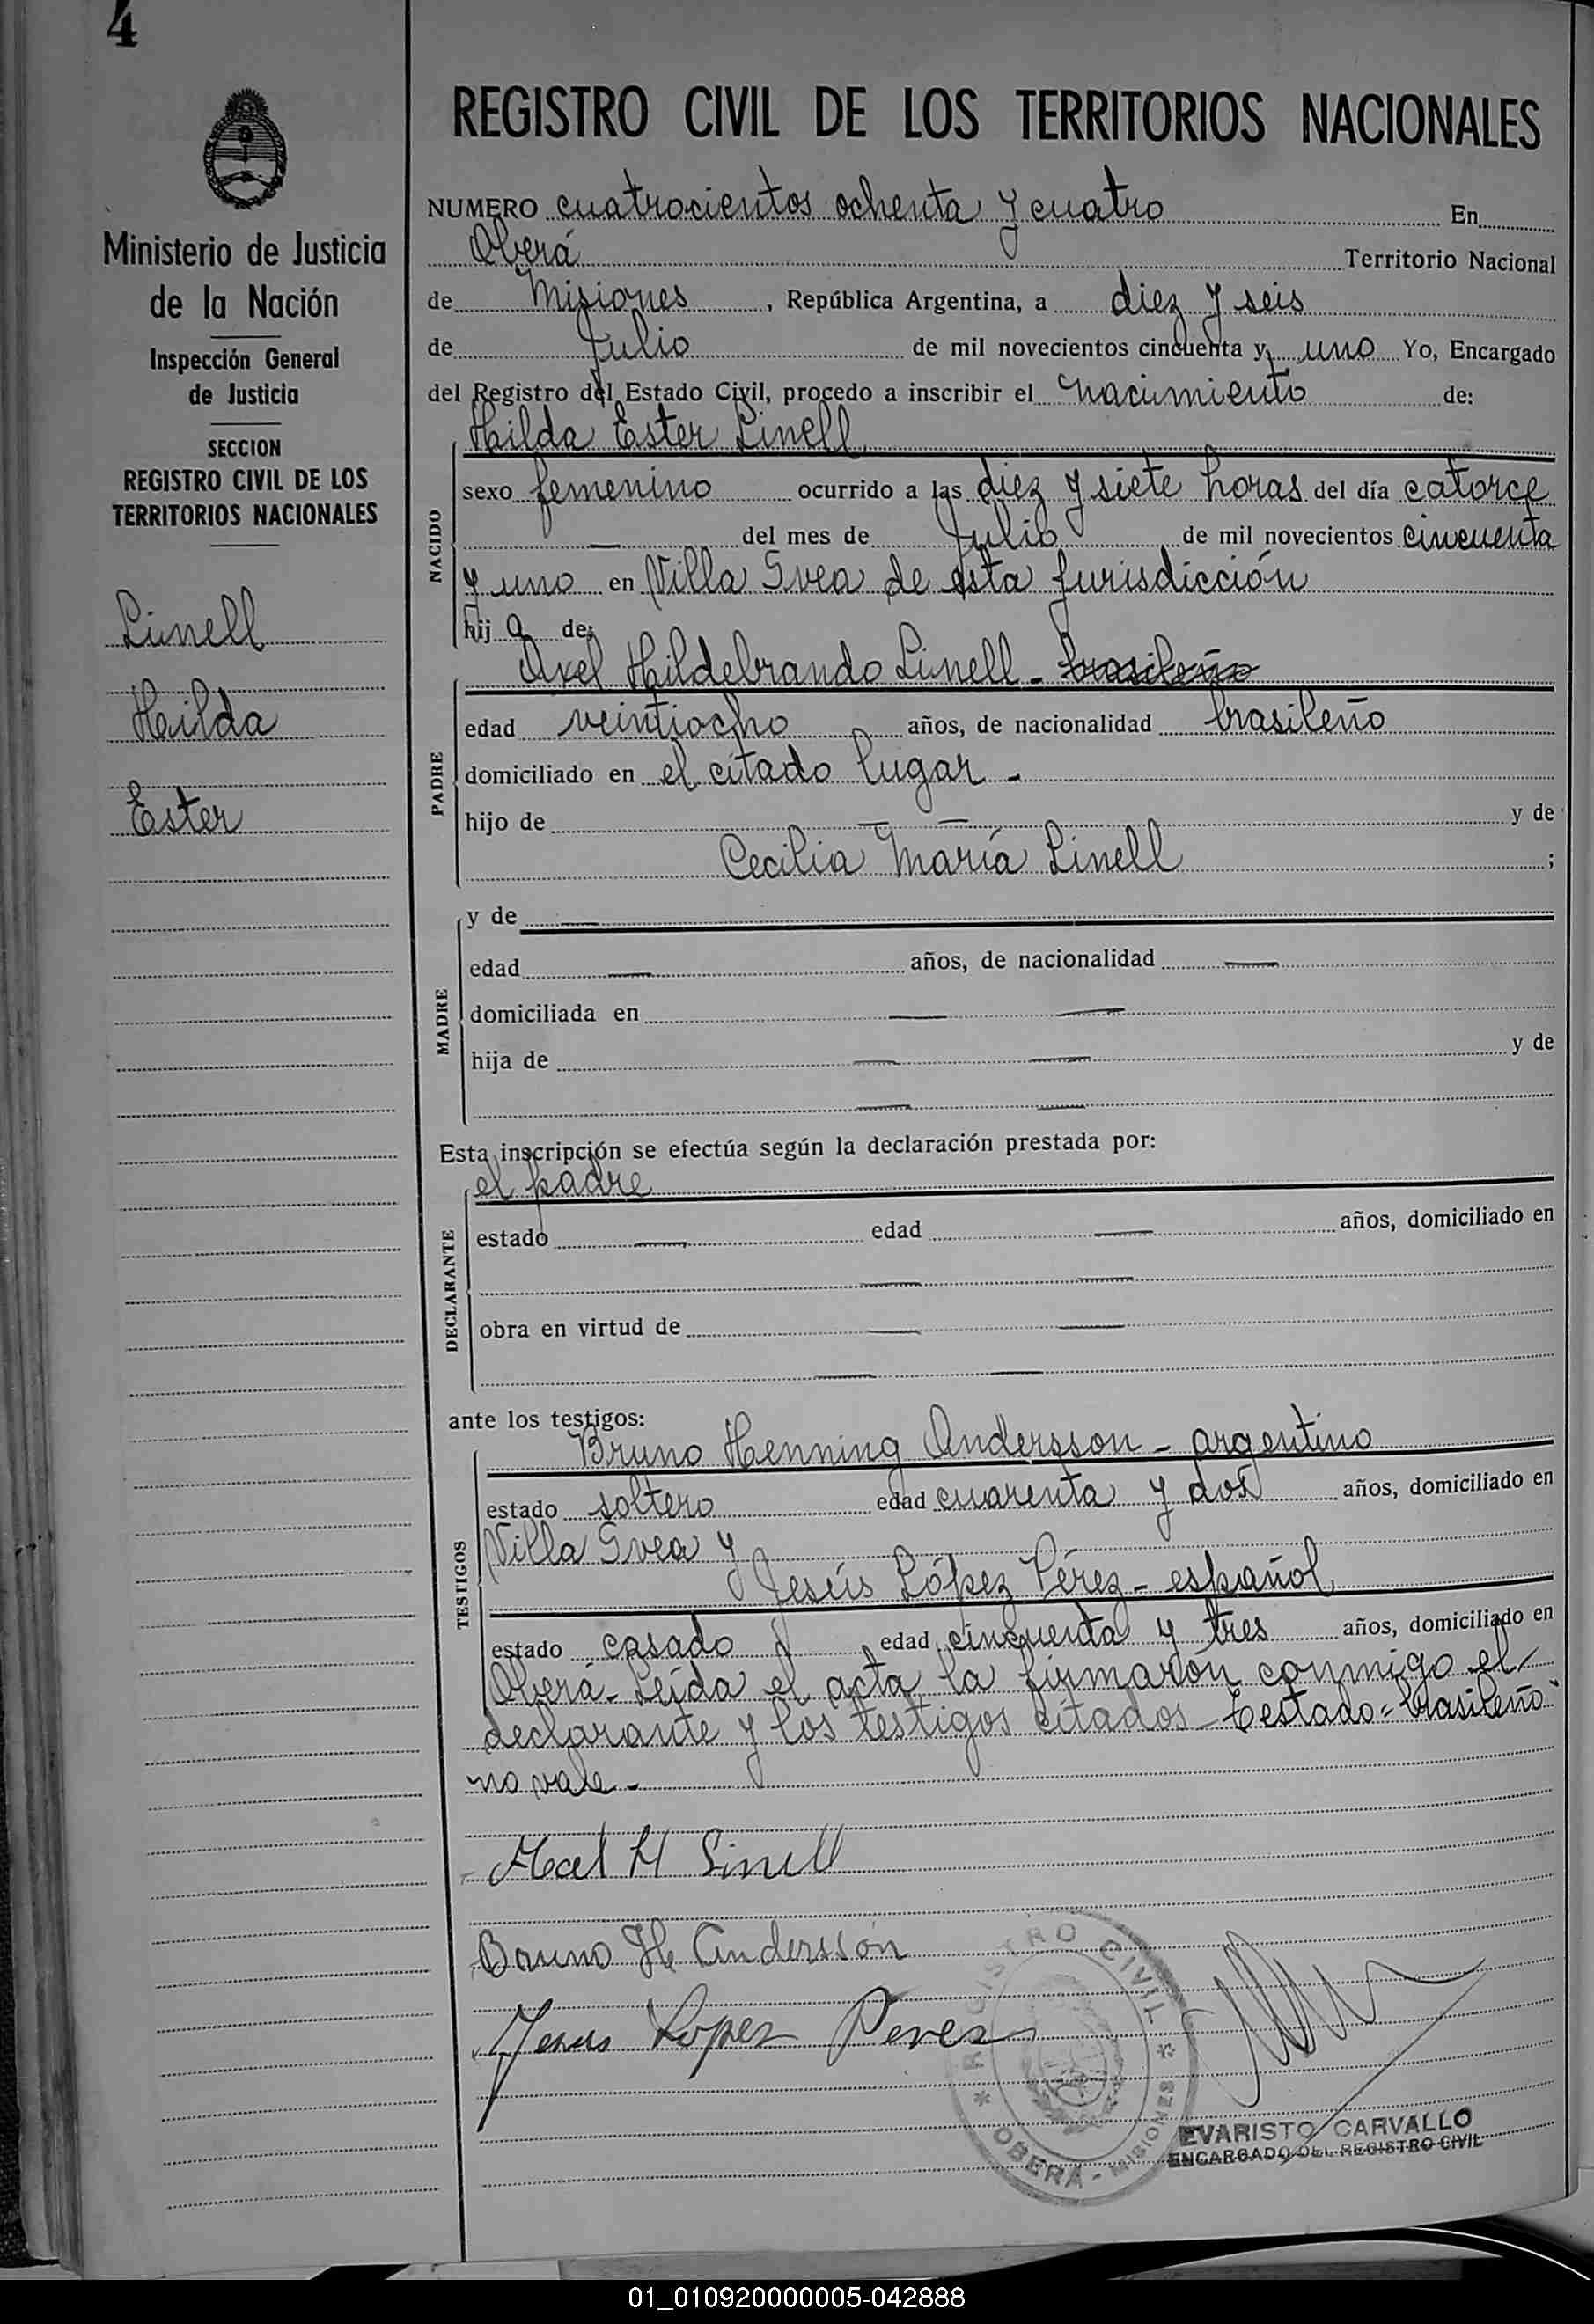 4
Ministerio de Justicia
de la Nación
Inspección General
de Justicia
SECCION
REGISTRO CIVIL DE LOS
TERRITORIOS NACIONALES
Linell
Hilda
Ester
REGISTRO CIVIL DE LOS TERRITORIOS NACIONALES
NUMERO cuatrocientos ochenta y cuatro En
Oberá Territorio Nacional
de Misiones, República Argentina, a diez y seis
de Julio de mil novecientos cincuenta y uno Yo, Encargado
del Registro del Estado Civil, procedo a inscribir el nacimiento de:
Hilda Ester Linell
NACIDO
sexo femenino ocurrido a las diez y siete horas del día catorce
— del mes de Julio de mil novecientos cincuenta
y uno en Villa Svea de esta jurisdicción
hija de:
Axel Hildebrando Linell - brasileño
PADRE
edad veintiocho años, de nacionalidad brasileño
domiciliado en el citado lugar -
hijo de — — y de
Cecilia María Linell ;
MADRE
y de —
edad — años, de nacionalidad —
domiciliada en — —
hija de — — y de
— —
Esta inscripción se efectúa según la declaración prestada por:
el padre
DECLARANTE
estado — edad — años, domiciliado en
— —
obra en virtud de — —
— —
ante los testigos:
Bruno Henning Andersson - argentino
TESTIGOS
estado soltero edad cuarenta y dos años, domiciliado en
Villa Svea y
Jesús López Pérez - español
estado casado edad cincuenta y tres años, domiciliado en
Oberá - Leída el acta la firmaron conmigo el
declarante y los testigos citados - Testado = brasileño
no vale -
Axel H Linell
Bruno H Anderssón
Jesus Lopez Perez
REGISTRO CIVIL
* OBERÁ - MISIONES *
EVARISTO CARVALLO
ENCARGADO DEL REGISTRO CIVIL
01_010920000005-042888